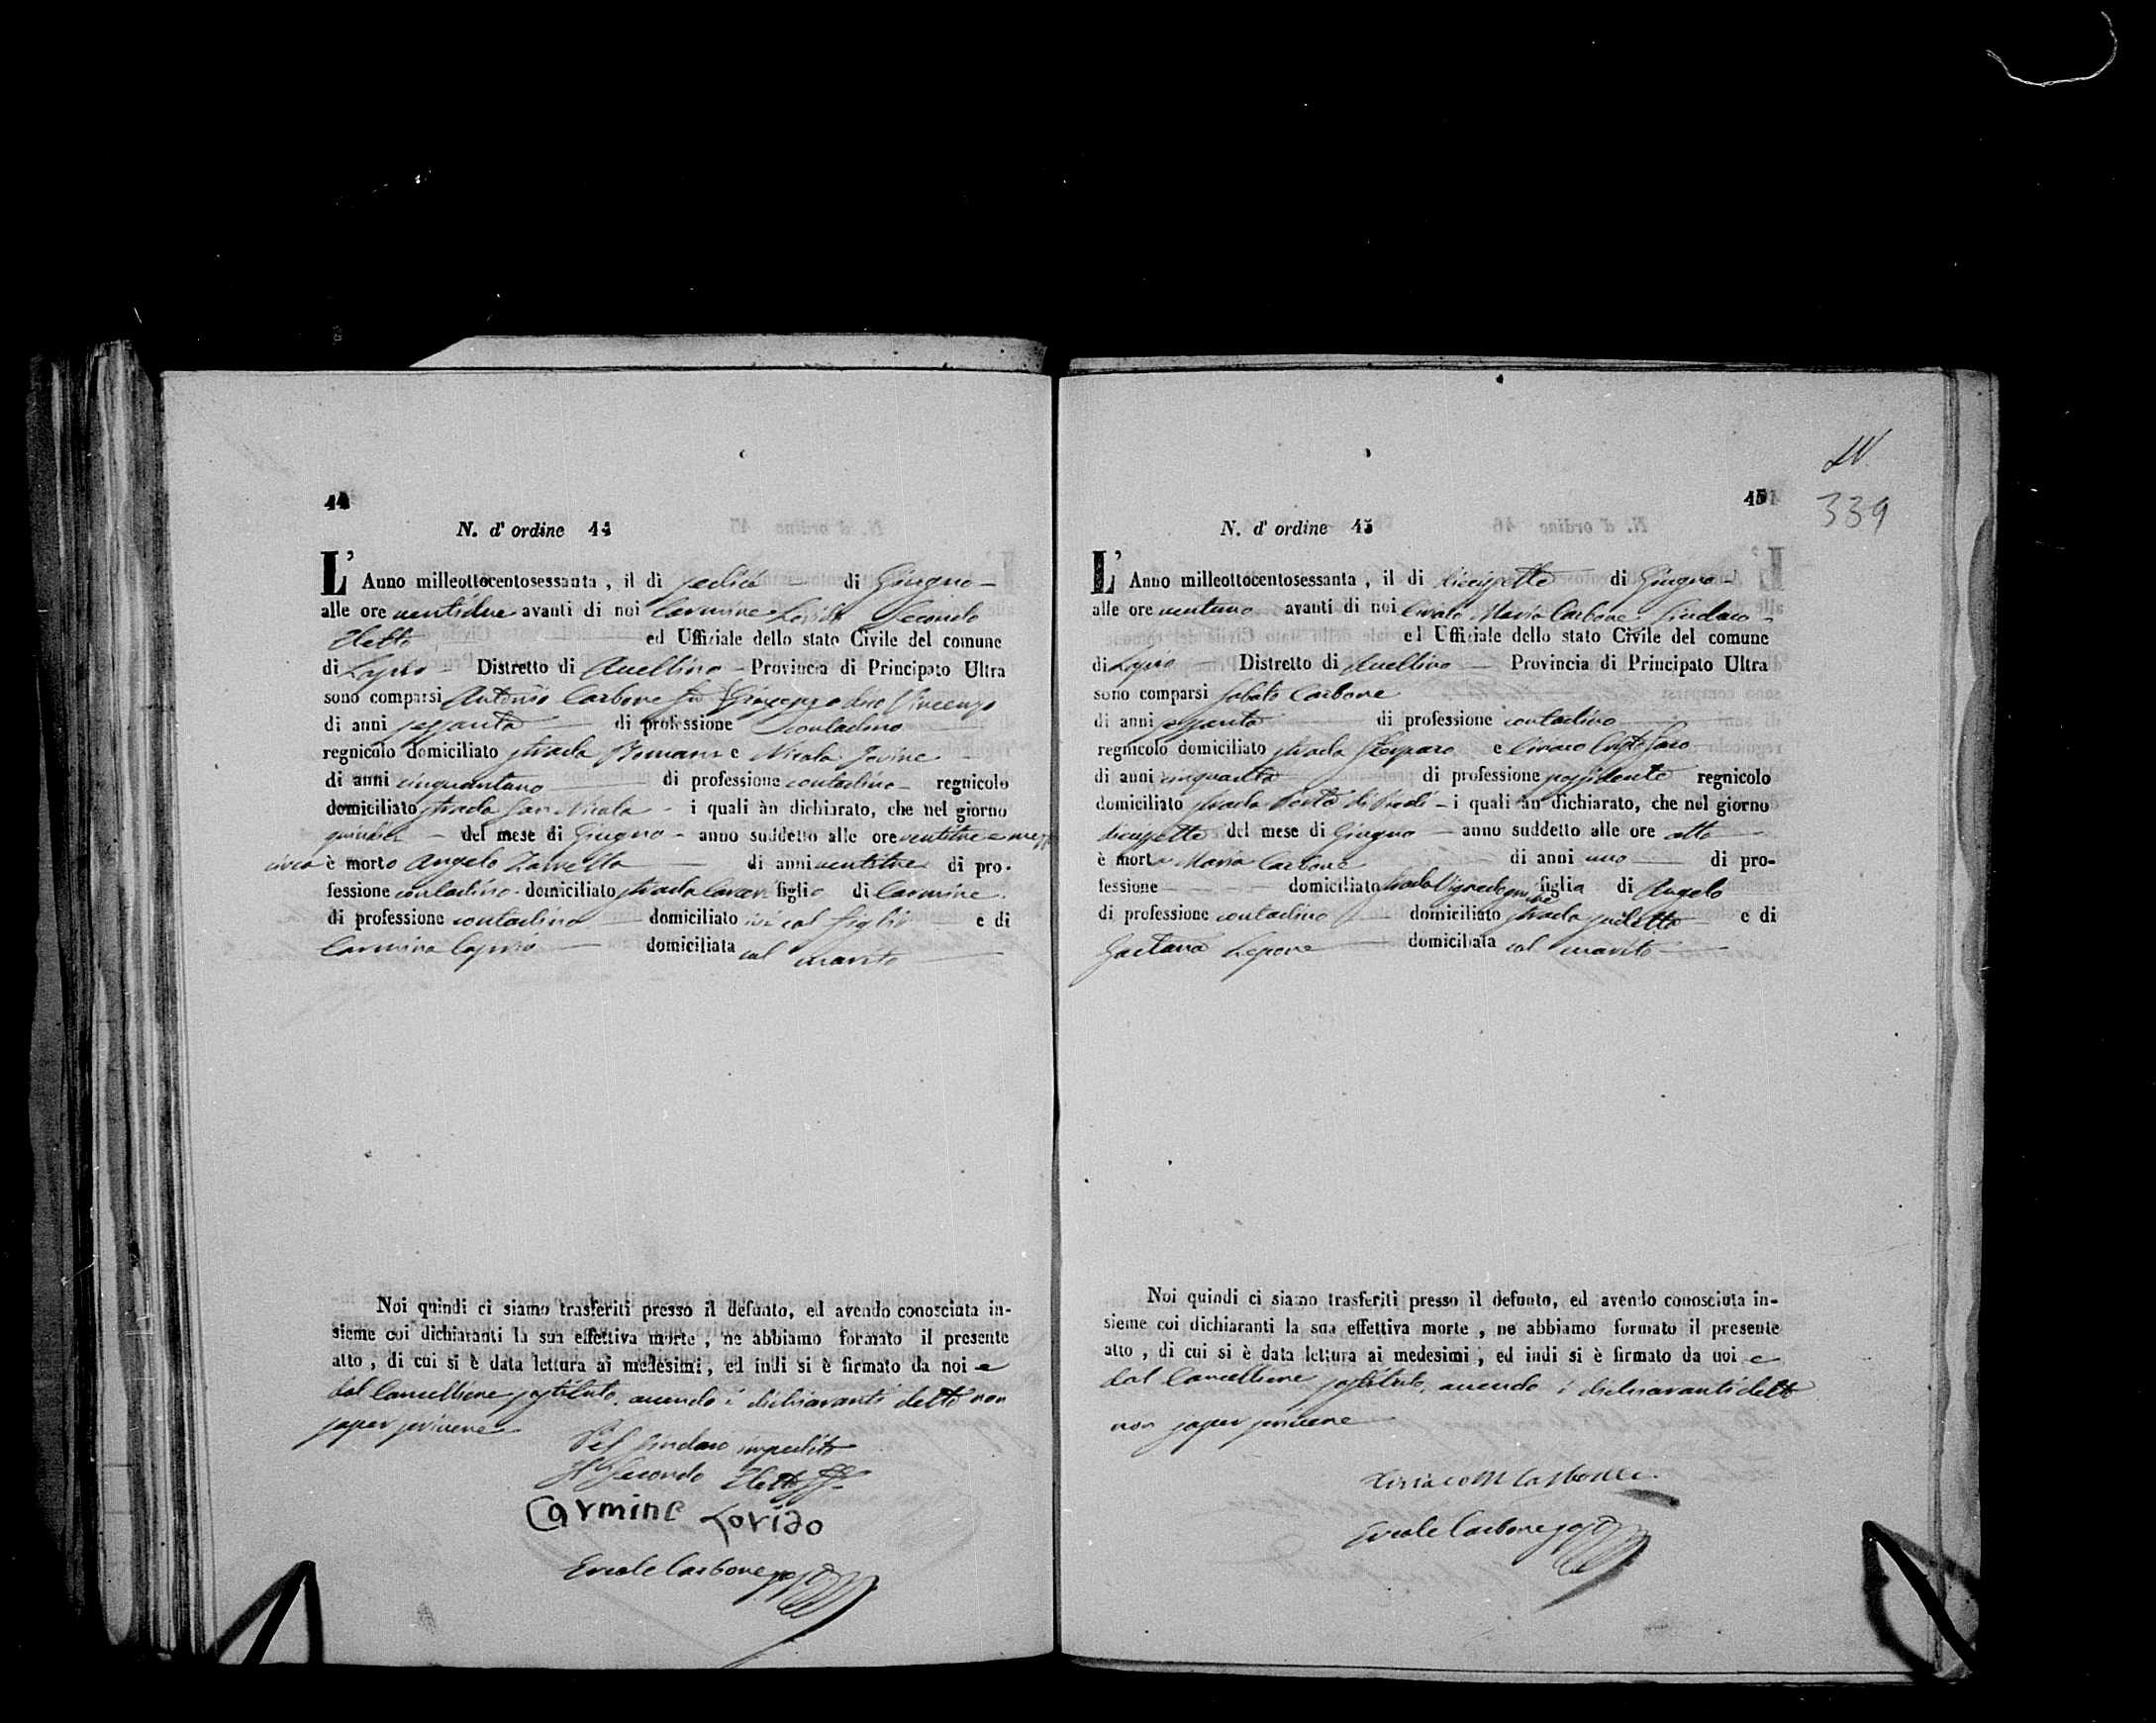 44
N. d' ordine 44
L' Anno milleottocentosessanta , il di sedici di Giugno
alle ore ventidue avanti di noi Carmine Lorido Secondo
Eletto ed Uffiziale dello stato Civile del comune
di Lapio Distretto di Avellino Provincia di Principato Ultra
sono comparsi Antonio Carbone fu Vincenzo
di anni sessanta di professione contadino
regnicolo domiciliato strada Romani e Nicola Jovine
di anni cinquantuno di professione contadino regnicolo
domiciliato strada San Nicola i quali àn dichiarato, che nel giorno
quindici del mese di Giugno anno suddetto alle ore ventitre e mezzo
circa è morto Angelo Zarrella di anni ventitre di pro-
fessione contadino domiciliato strada figlio di Carmine
di professione contadino domiciliato ivi col figlio e di
Carmina Caprio domiciliata col marito
Noi quindi ci siamo trasferiti presso il defunto, ed avendo conosciuta in-
sieme coi dichiaranti la sua effettiva morte , ne abbiamo formato il presente
atto , di cui si è data lettura ai medesimi, ed indi si è firmato da noi e
dal Cancelliere sostituto, avendo i dichiaranti detto non
saper scrivere
Pel Sindaco impedito
Il Secondo Eletto
Carmine Lorido
Ercole Carbone sost
45
339
N. d' ordine 45
L' Anno milleottocentosessanta , il di diciassette di Giugno
alle ore ventuno avanti di noi Ciriaco Maria Carbone Sindaco
ed Uffiziale dello stato Civile del comune
di Lapio Distretto di Avellino Provincia di Principato Ultra
sono comparsi Sabato Carbone
di anni sessanta di professione contadino
regnicolo domiciliato strada e Ciriaco Cristofaro
di anni cinquanta di professione possidente regnicolo
domiciliato strada Porta di i quali àn dichiarato, che nel giorno
diciassette del mese di Giugno anno suddetto alle ore otto
è morta Maria Carbone di anni uno di pro-
fessione domiciliato strada figlia di Angelo
di professione contadino domiciliato strada sudetta e di
Gaetana Lepore domiciliata col marito
Noi quindi ci siamo trasferiti presso il defunto, ed avendo conosciuta in-
sieme coi dichiaranti la sua effettiva morte , ne abbiamo formato il presente
atto , di cui si è data lettura ai medesimi , ed indi si è firmato da noi e
dal Cancelliere sostituto, avendo i dichiaranti detto
non saper scrivere
Ciriaco M Carbone
Ercole Carbone sost